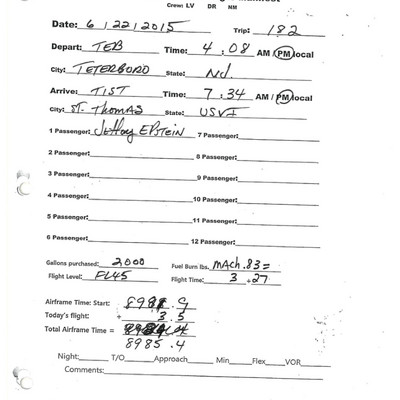 Crew: LV DR NM
Date: 6/22/2015 Trip: 182
Depart: TEB Time: 4:08 AM / PM local
City: TETERBORO State: NJ.
Arrive: TIST Time: 7:34 AM / PM local
City: ST. THOMAS State: USVI
1 Passenger: Jeffrey EPSTEIN 7 Passenger:
2 Passenger: 8 Passenger:
3 Passenger: 9 Passenger:
4 Passenger: 10 Passenger:
5 Passenger: 11 Passenger:
6 Passenger: 12 Passenger:
Gallons purchased: 2000 Fuel Burn lbs. MAch .83 =
Flight Level: FL45 Flight Time: 3 + 27
Airframe Time: Start: 8981.9
Today's flight: + 3.5
Total Airframe Time =
8985.4
Night: T/O Approach Min Flex VOR
Comments: